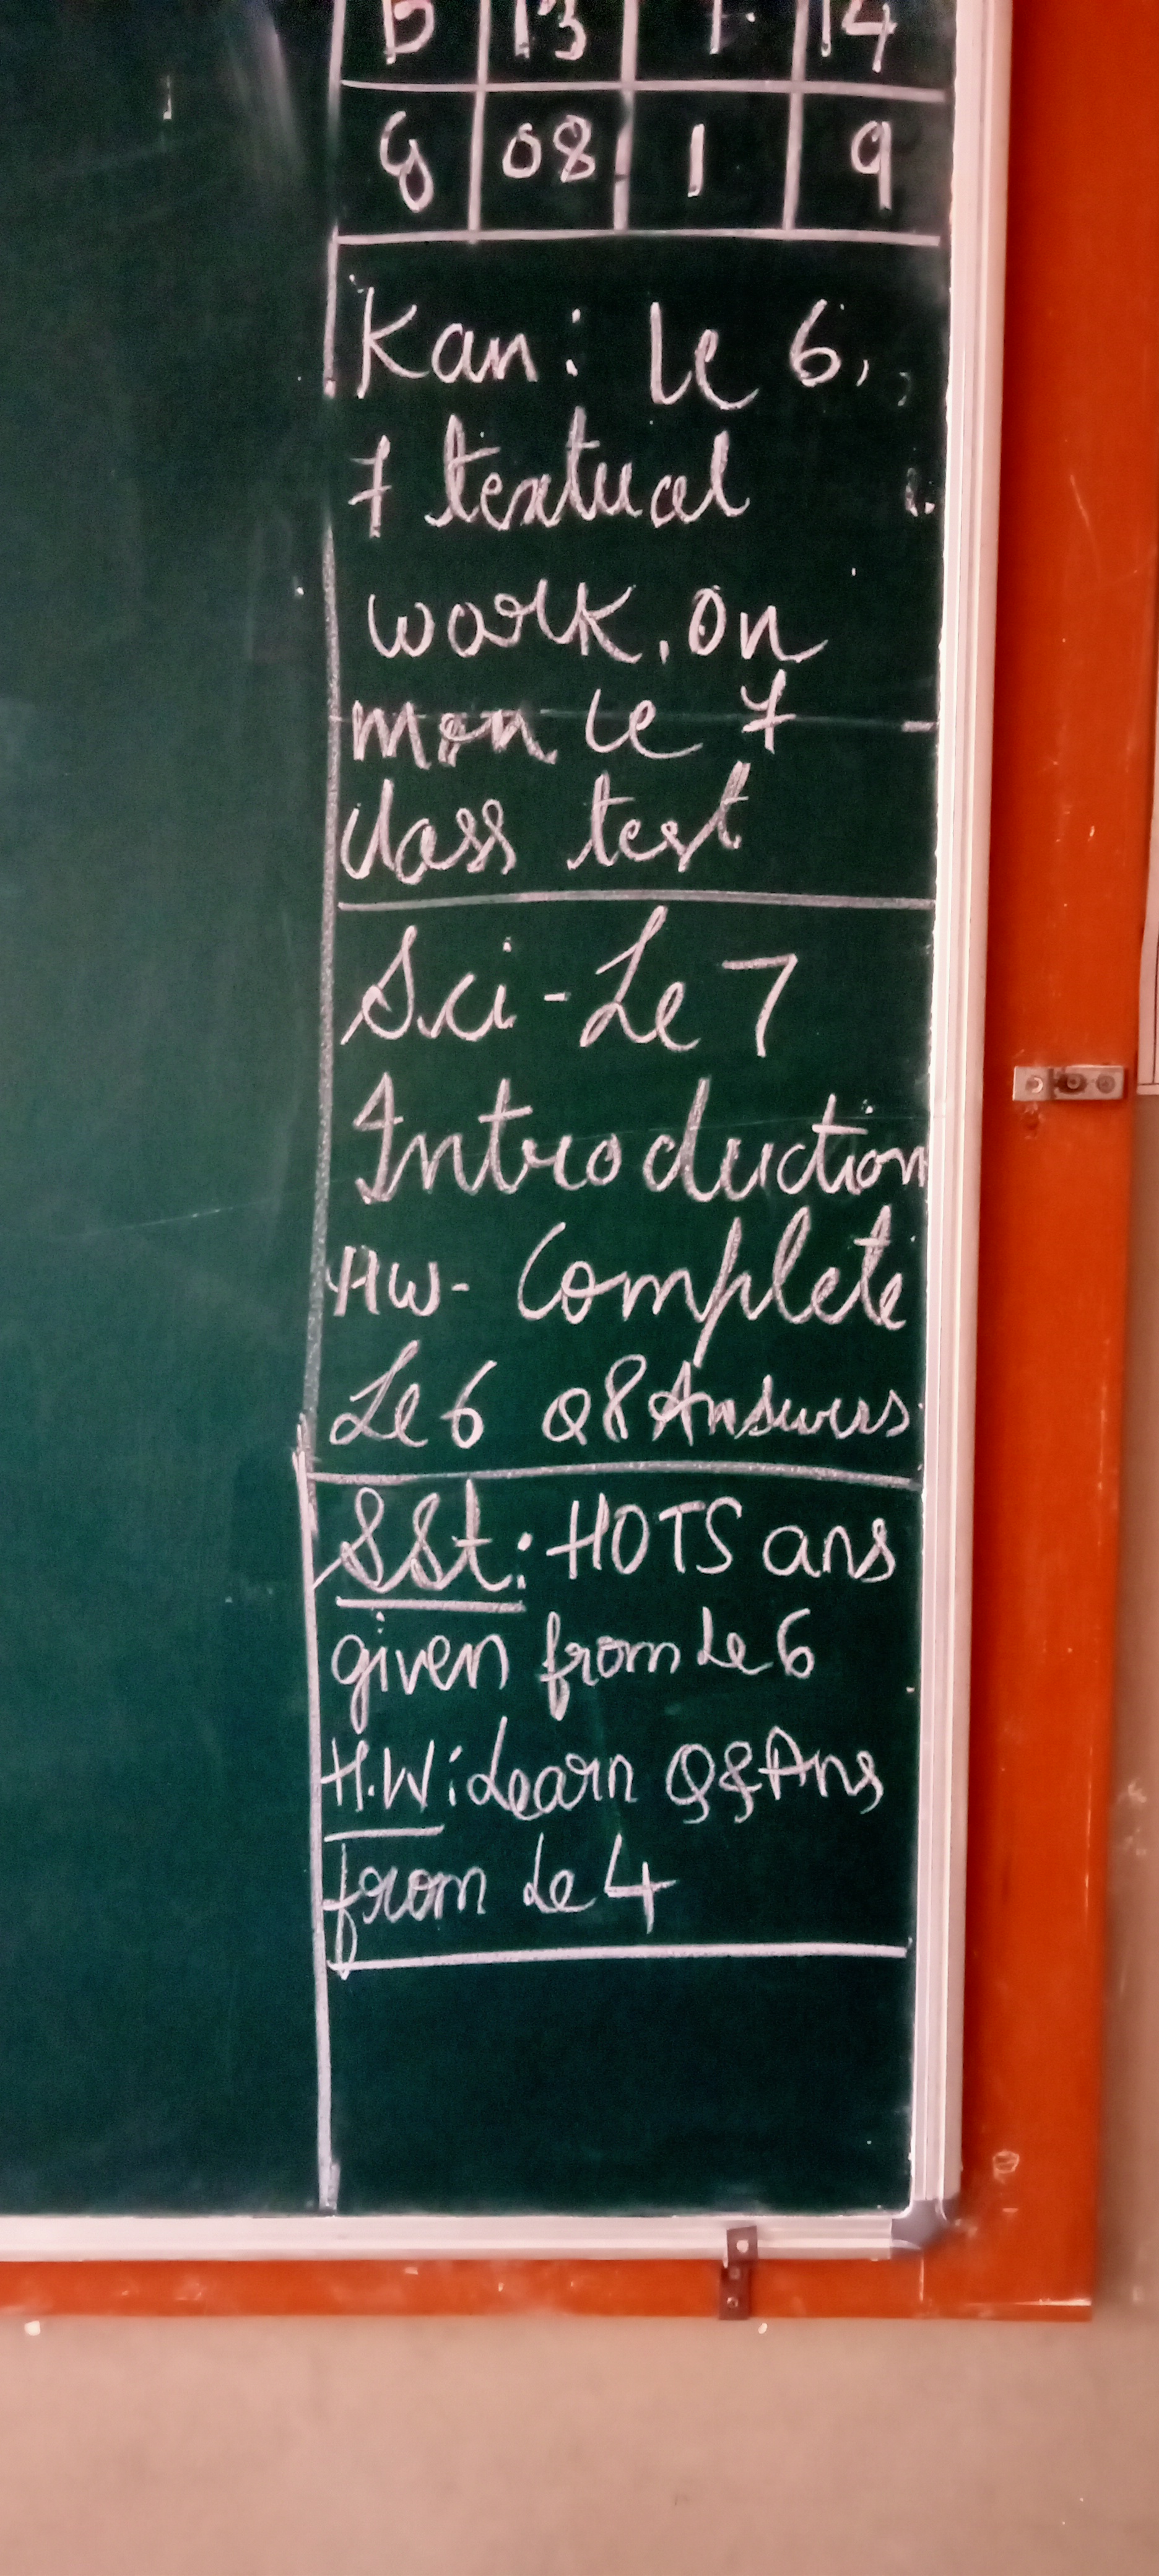 B 13 1 14
G 08 1 9
Kan: Le 6,
7 textual
work. On
mon Le 7
class test
Sci - Le 7
Introduction
HW - Complete
Le 6 Q & Answers
SSt: HOTS ans
given from Le 6
H.W: Learn Q & Ans
from Le 4